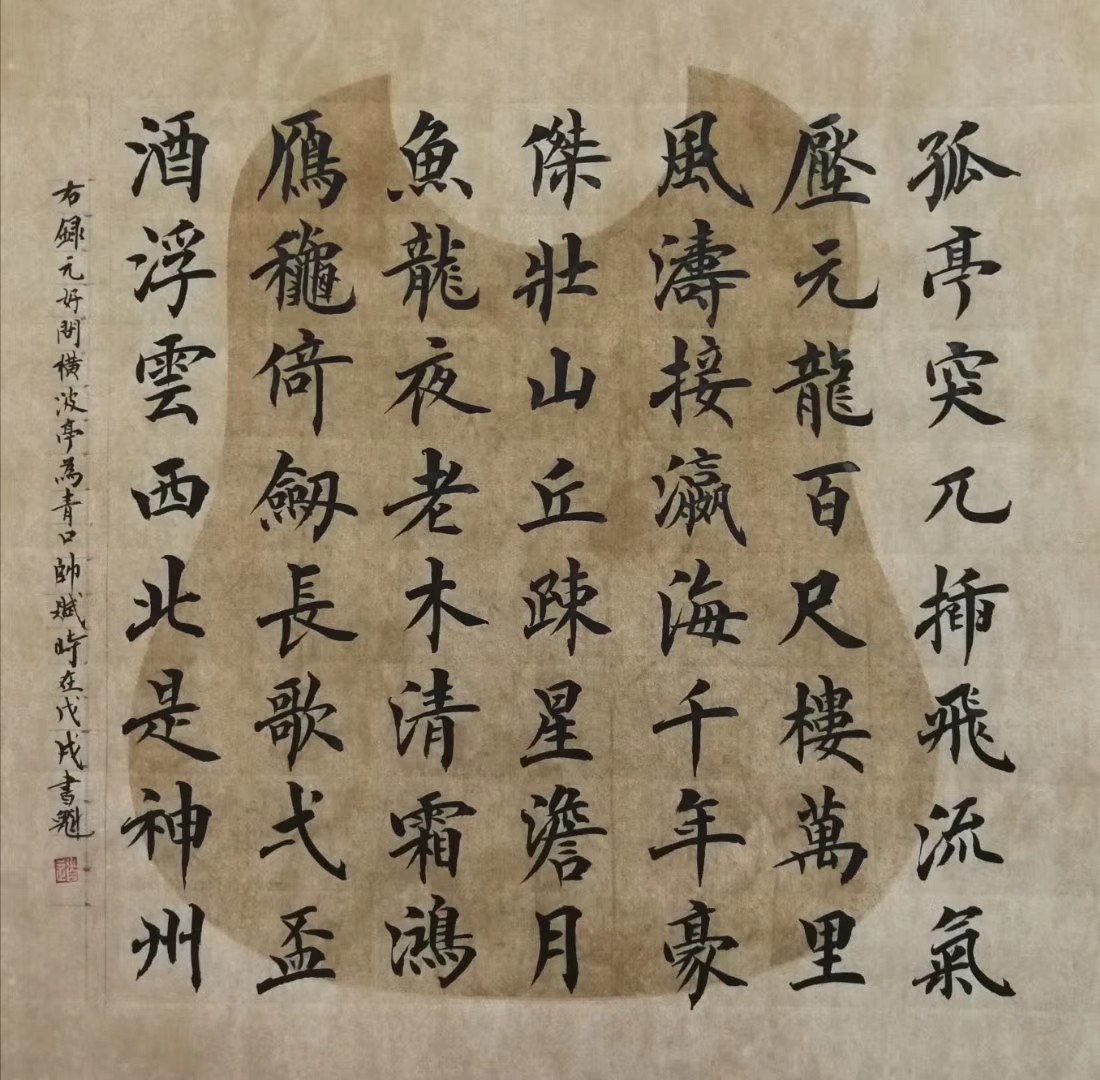 孤亭突兀插飛流氣
壓元龍百尺樓萬里
風濤接瀛海千年豪
傑壯山丘疎星澹月
魚龍夜老木清霜鴻
鴈龝倚劔長歌弌盃
酒浮雲西北是神州
右録元好問橫波亭為青口帥賦時在戊戌書